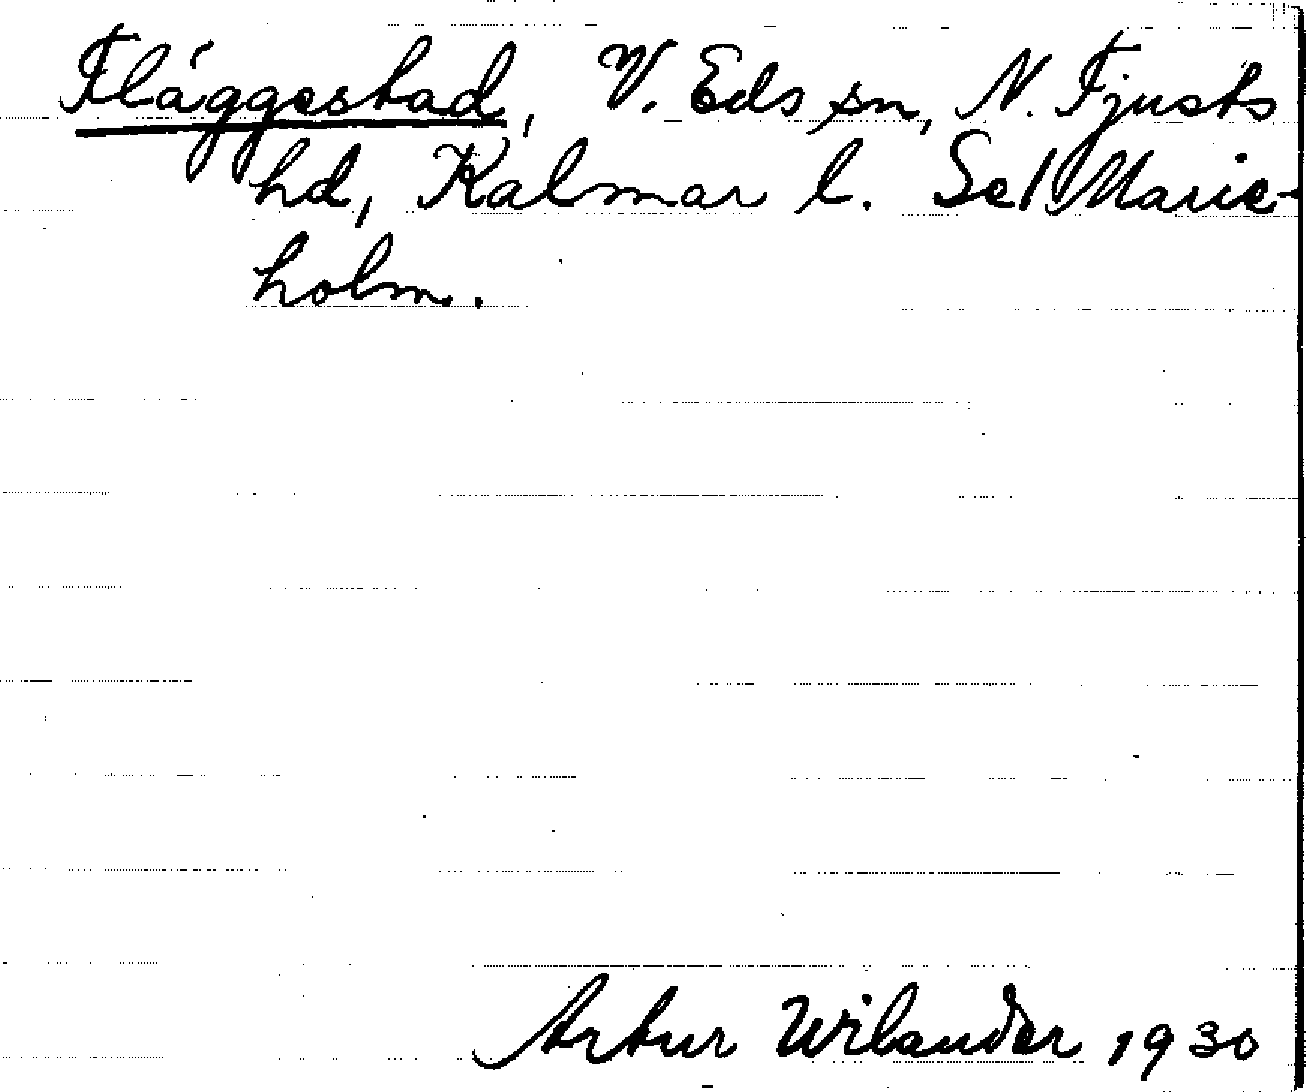 Fläggestad, V. Eds sn, N. Tjusts
hd, Kalmar l. Se/Marie-
holm.
Artur Wilander 1930